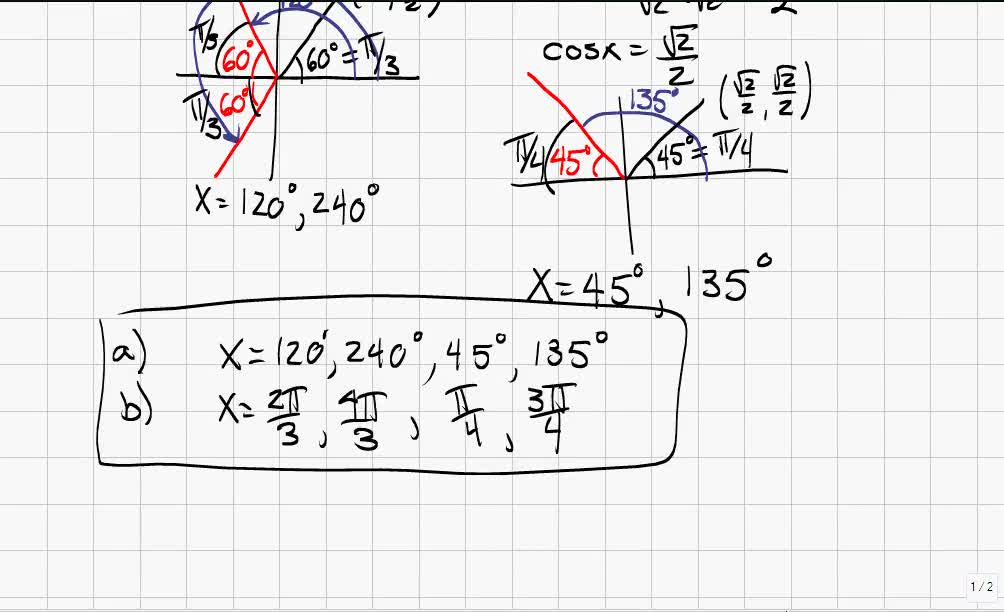 π/3 60° 60° = π/3
π/3 60°
x = 120°, 240°
cosx = √2/2
135° (√2/2, √2/2)
π/4 45° 45° = π/4
x = 45°, 135°
a) x = 120°, 240°, 45°, 135°
b) x = 2π/3, 4π/3, π/4, 3π/4
1 / 2